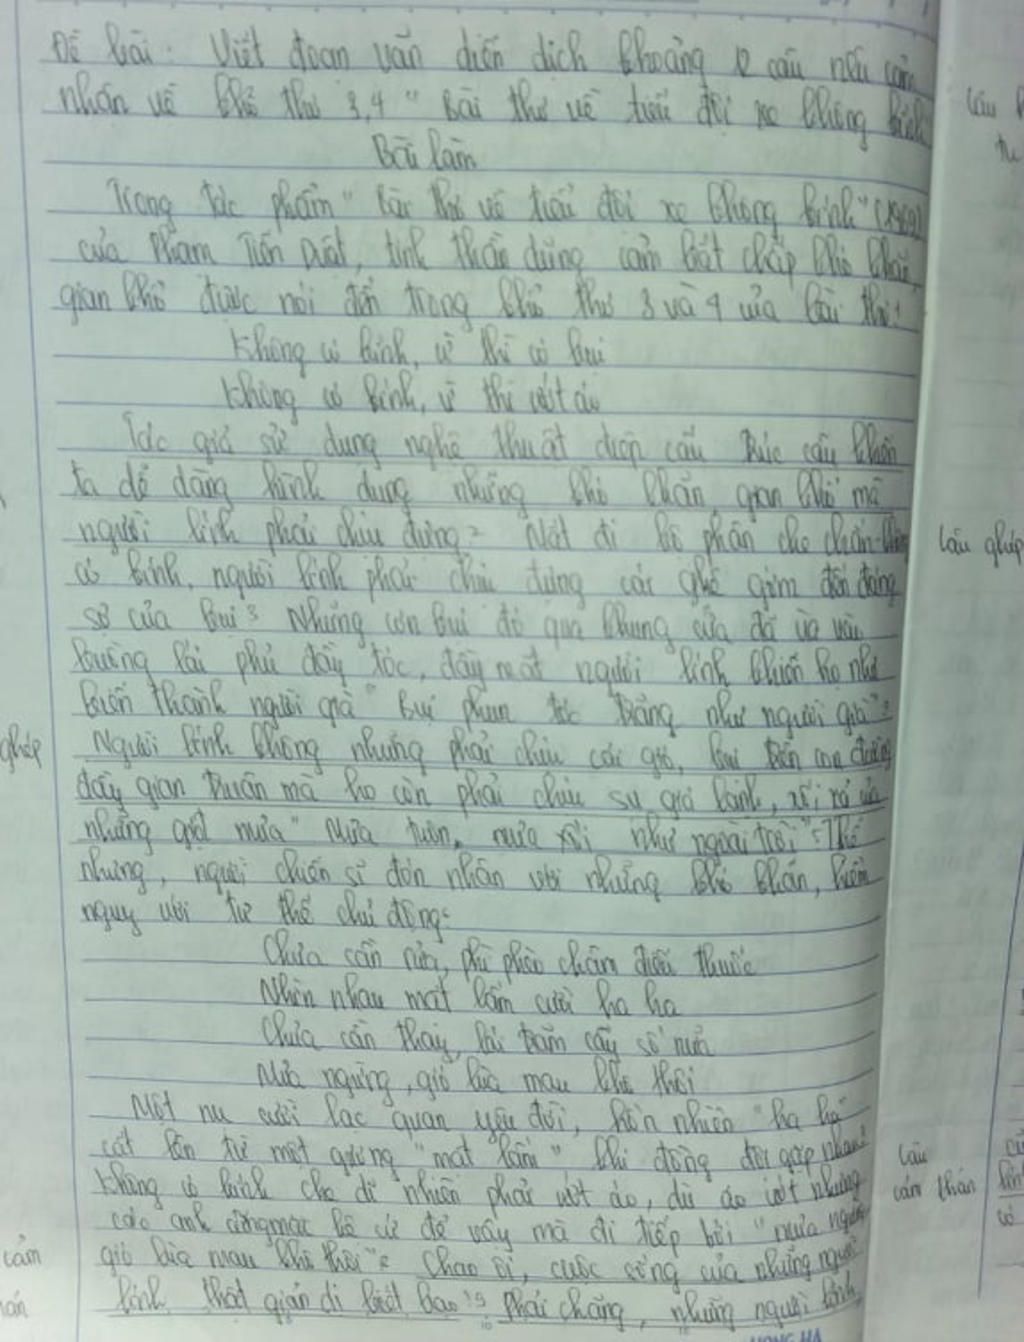 Đề bài: Viết đoạn văn diễn dịch khoảng 12 câu nêu cảm
nhận về khổ thơ 3,4 "Bài thơ về tiểu đội xe không kính
Bài làm
Trong tác phẩm "Bài thơ về tiểu đội xe không kính" (1969)
của Phạm Tiến Duật, tinh thần dũng cảm bất chấp khó khăn,
gian khổ được nói đến trong khổ thơ 3 và 4 của bài thơ:
Không có kính, ừ thì có bụi
Không có kính, ừ thì ướt áo
Tác giả sử dụng nghệ thuật điệp cấu trúc câu khiến
ta dễ dàng hình dung những khó khăn, gian khổ mà
người lính phải chịu đựng. Mất đi bộ phận che chắn-không
có kính, người lính phải chịu đựng cái ghê gớm đến đáng
sợ của bụi. Những cơn bụi đó qua khung cửa đã ùa vào
buồng lái phủ đầy tóc, đầy mặt người lính khiến họ như
biến thành người già "Bụi phun tóc trắng như người già".
Người lính không những phải chịu cái gió, bụi trên con đường
đầy gian truân mà họ còn phải chịu sự giá lạnh, xối xả của
những giọt mưa "Mưa tuôn, mưa xối như ngoài trời". Thế
nhưng, người chiến sĩ đón nhận với những khó khăn, hiểm
nguy với tư thế chủ động:
Chưa cần rửa, phì phèo châm điếu thuốc
Nhìn nhau mặt lấm cười ha ha
Chưa cần thay, lái trăm cây số nữa
Mưa ngừng, gió lùa mau khô thôi
Một nụ cười lạc quan yêu đời, hồn nhiên "ha ha"
cất lên từ một gương "mặt lấm" khi đồng đội gặp nhau.
Không có kính che dĩ nhiên phải ướt áo, dù áo ướt nhưng
các anh cũng mặc kệ cứ để vậy mà đi tiếp bởi "mưa ngừng
gió lùa mau khô thôi". Chao ôi, cuộc sống của những người
lính thật giản dị biết bao! Phải chăng, những người lính
câu ghép
ghép
câu
cảm thán
cảm